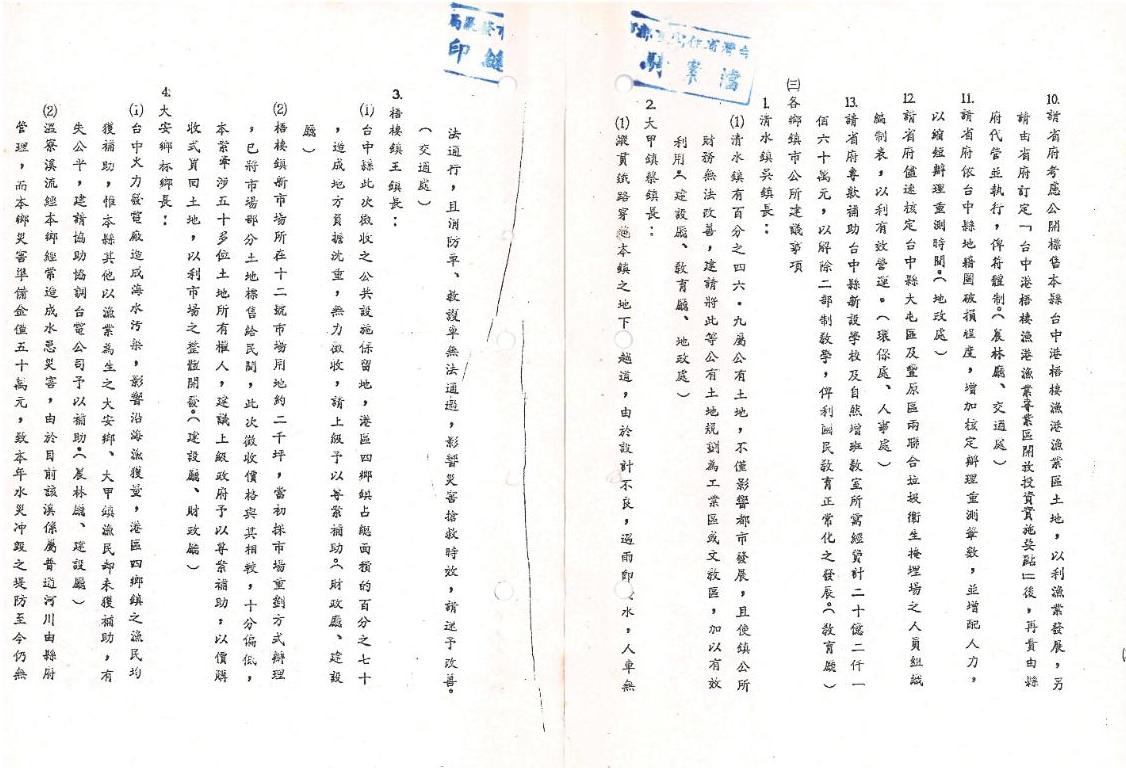 10.請省府考慮公開標售本縣台中港梧棲漁港漁業區土地，以利漁業發展，另
請由省府訂定「台中港梧棲漁港漁業專業區開放投資實施要點」後，再責由縣
府代管並執行，俾符體制。（農林廳、交通處）
11.請省府依台中縣地籍圖破損程度，增加核定辦理重測筆數，並增配人力，
以縮短辦理重測時間。（地政處）
12.請省府儘速核定台中縣大屯區及豐原區兩聯合垃圾衛生掩埋場之人員組織
編制表，以利有效營運。（環保處、人事處）
13.請省府專款補助台中縣新設學校及自然增班教室所需經費計二十億二仟一
佰六十萬元，以解除二部制教學，俾利國民教育正常化之發展。（教育廳）
㈢各鄉鎮市公所建議事項
1.清水鎮吳鎮長：
⑴清水鎮有百分之四六．九屬公有土地，不僅影響都市發展，且使鎮公所
財務無法改善，建請將此等公有土地規劃為工業區或文教區，加以有效
利用。（建設廳、教育廳、地政處）
2.大甲鎮蔡鎮長：
⑴縱貫鐵路穿越本鎮之地下 越道，由於設計不良，遇雨即 水，人車無
檔案
法通行，且消防車、救護車無法通過，影響災害搶救時效，請速予改善。
（交通處）
3.梧棲鎮王鎮長：
⑴台中縣此次徵收之公共設施保留地，港區四鄉鎮占總面積的百分之七十
，造成地方負擔沈重，無力徵收，請上級予以專案補助。（財政廳、建設
廳）
⑵梧棲鎮新市場所在十二號市場用地約二千坪，當初採市場重劃方式辦理
，已將市場部分土地標售給民間，此次徵收價格與其相較，十分偏低，
本案牽涉五十多位土地所有權人，建議上級政府予以專案補助，以價購
收式買回土地，以利市場之整體開發。（建設廳、財政廳）
4.大安鄉林鄉長：
⑴台中火力發電廠造成海水污染，影響沿海漁獲量，港區四鄉鎮之漁民均
獲補助，惟本縣其他以漁業為生之大安鄉、大甲鎮漁民却未獲補助，有
失公平，建請協助協調台電公司予以補助。（農林廳、建設廳）
⑵溫寮溪流經本鄉經常造成水患災害，由於目前該溪係屬普通河川由縣府
管理，而本鄉災害準備金僅五十萬元，致本年水災冲毀之堤防至今仍無
印